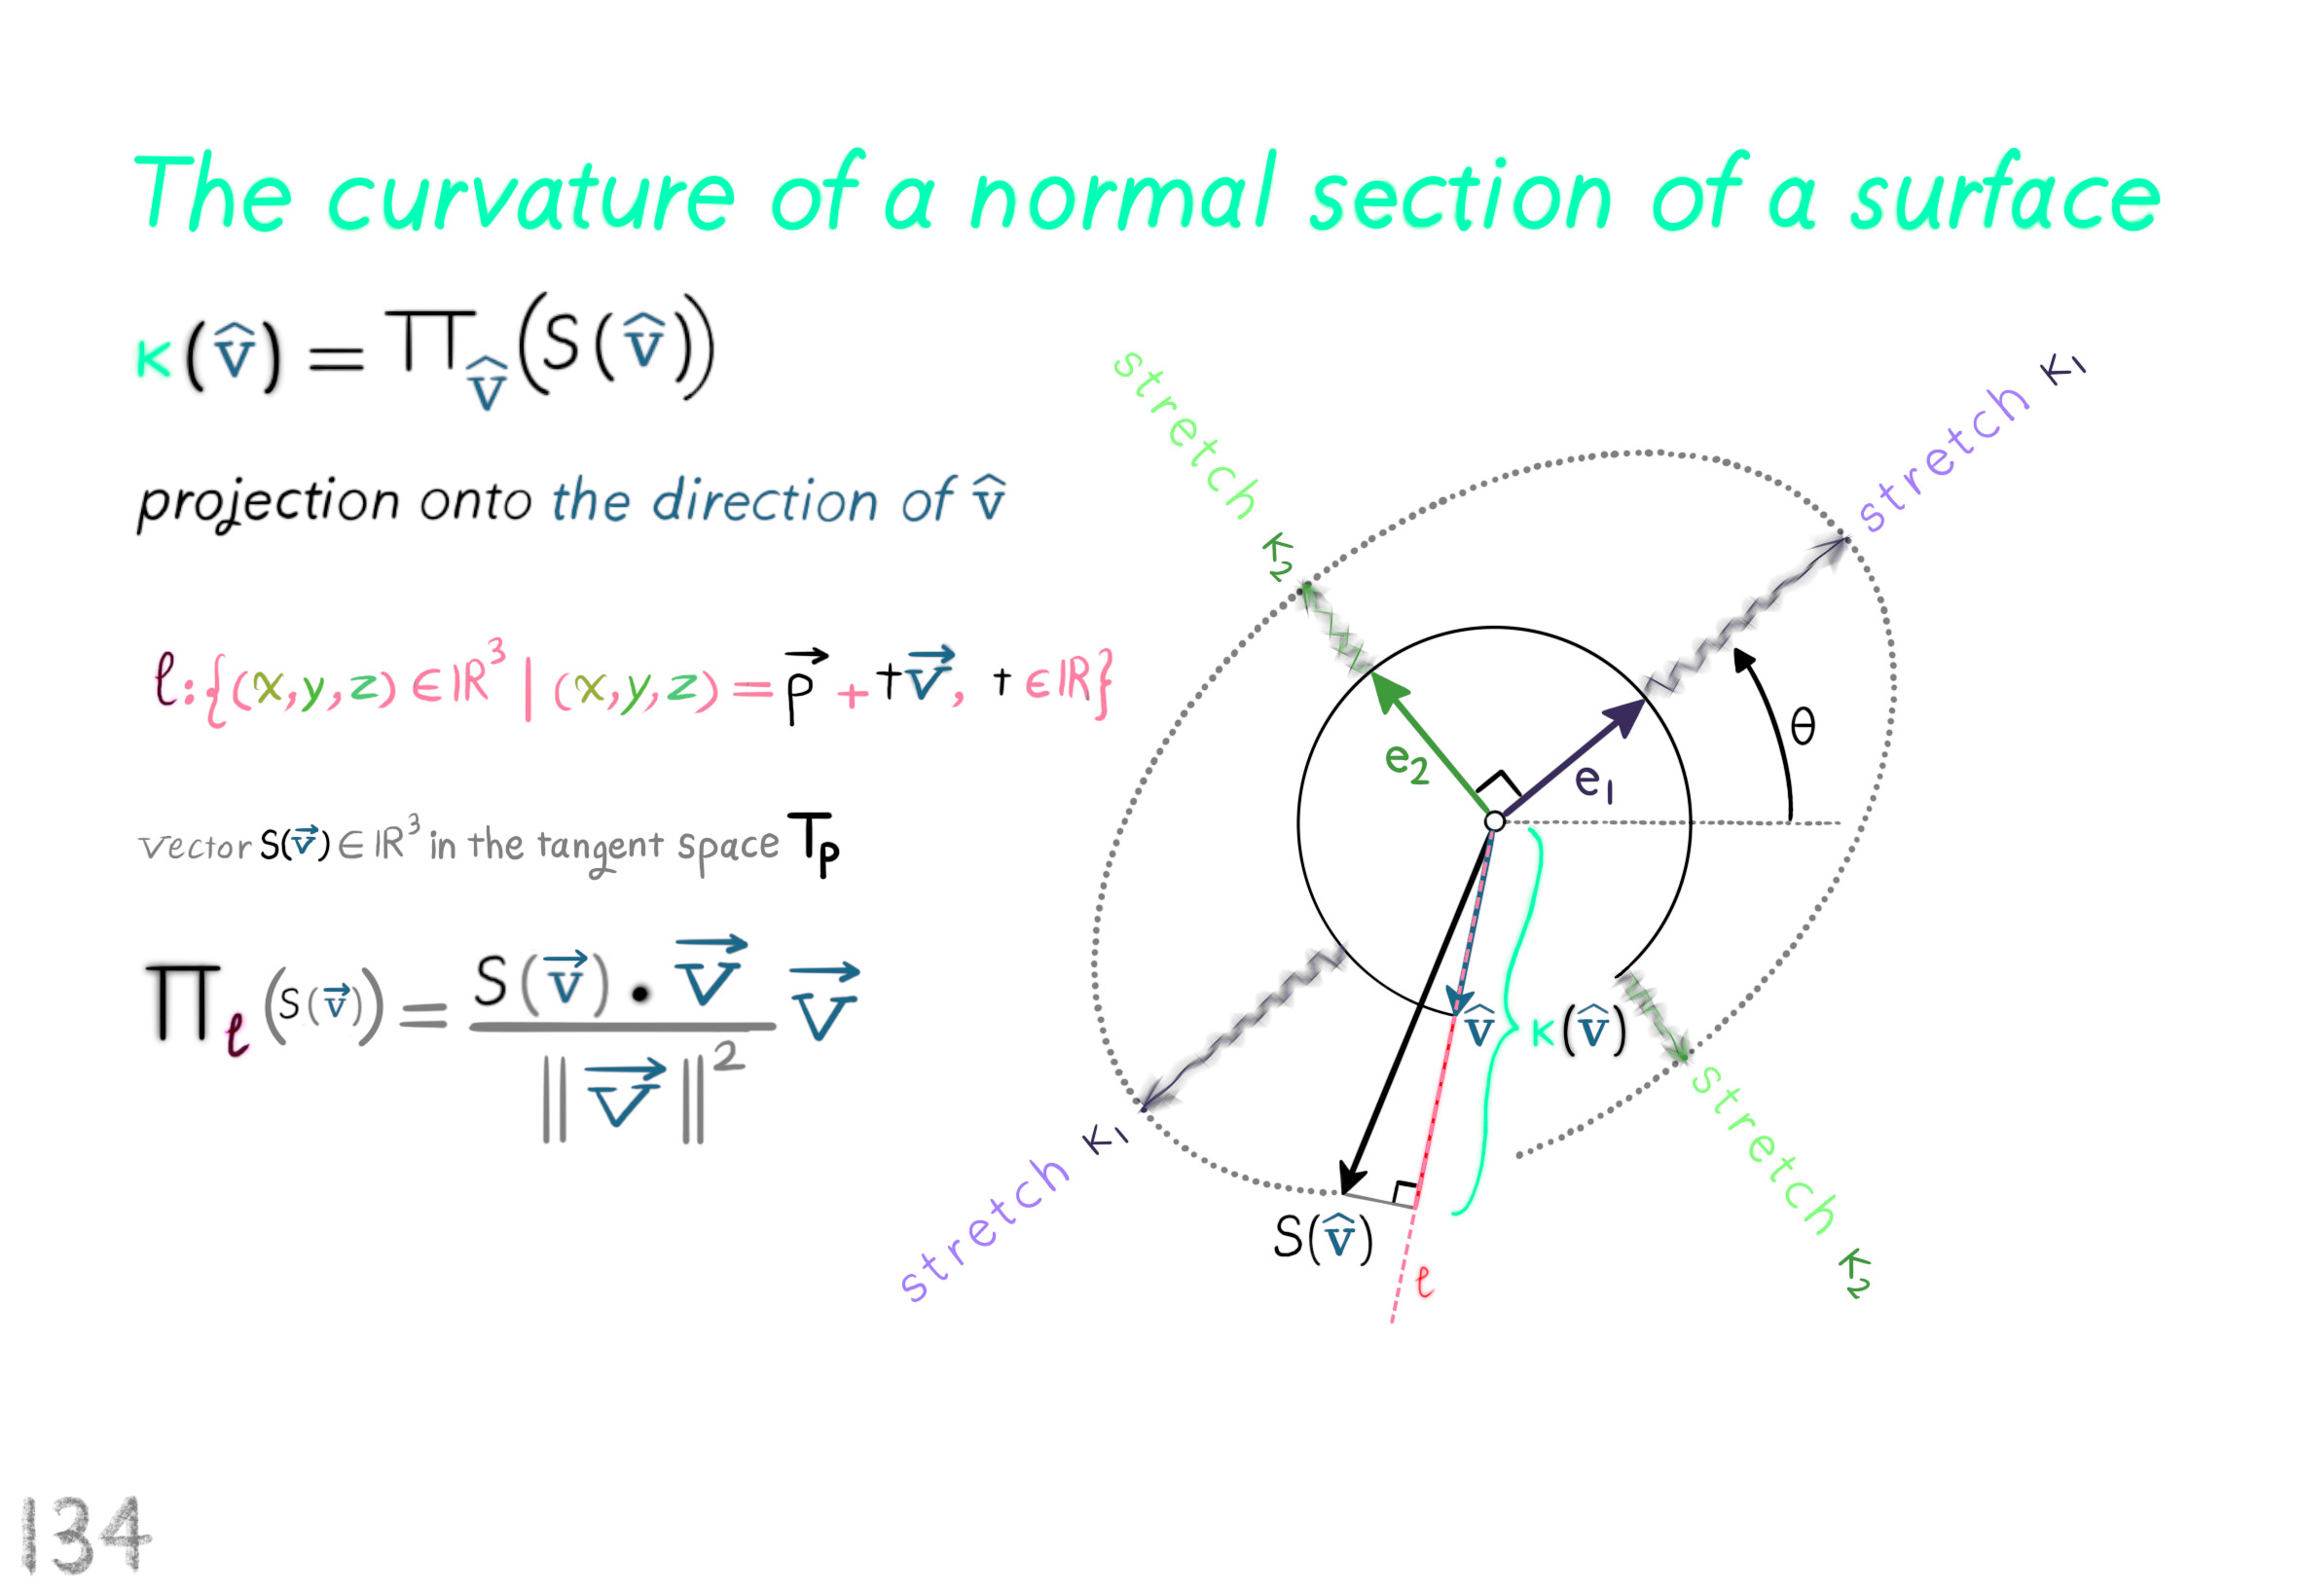 The curvature of a normal section of a surface
κ(v̂) = Π_v̂ (S(v̂))
projection onto the direction of v̂
ℓ:{(x,y,z) ∈ ℝ³ | (x,y,z) = p⃗ + t v⃗, t ∈ ℝ}
vector S(v⃗) ∈ ℝ³ in the tangent space Tₚ
Π_ℓ (S(v⃗)) = S(v⃗) · v⃗ / ‖v⃗‖² v⃗
stretch κ₂
stretch κ₁
e₂
e₁
θ
v̂
κ(v̂)
stretch κ₁
S(v̂)
ℓ
stretch κ₂
134